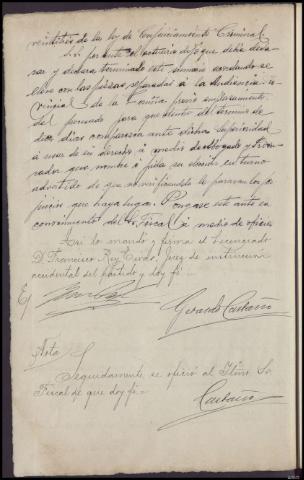 veintidos de la ley de Enjuiciamiento Criminal
Sria por ante el actuario dijo que debia decla
rar y declara terminado este sumario acordando se
eleve con las piezas separadas á la Audiencia pro
vincial de la previo emplazamiento
del procesado para que dentro del termino de
diez dias comparezca ante dicha Superioridad
á usar de su derecho á medio de Abogado y Procu
rador que nombre ó pida su eleccion en turno
advertido de que no verificandolo le pararan los per
juicios que haya lugar. Pongase este auto en
conocimiento del Sr. Fiscal á medio de oficio
Asi lo mandó y firma el Licenciado
D. Francisco Rey Juez de instruccion
accidental del partido y doy fé =
Gerardo Castaño
Nota
Seguidamente se ofició al Iltmo. Sr.
Fiscal de que doy fé =
Castaño